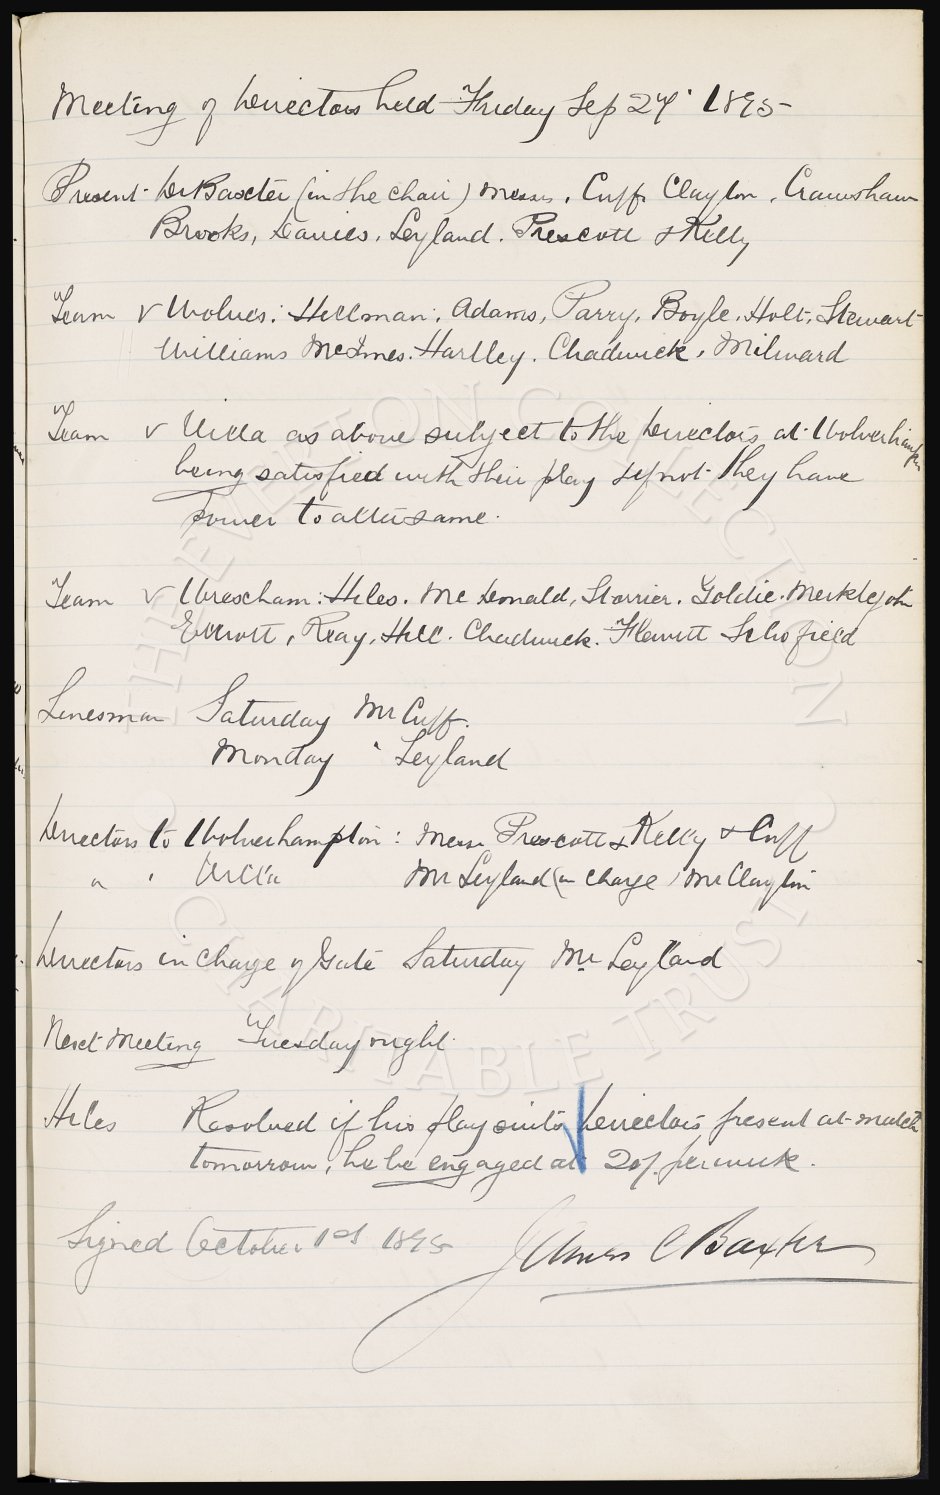 Meeting of Directors held Friday Sep 27' 1895
Present. Dr Baxter (in the chair) Messrs. Cuff, Clayton, Crawshaw
Brooks, Davies, Leyland. Prescott & Kelly
Team v Wolves: Hillman, Adams, Parry, Boyle. Holt. Stewart
Williams McInnes. Hartley. Chadwick, Milward
Team v Villa as above subject to the Directors at Wolverhampton
being satisfied with their play & if not they have
power to alter same.
Team v Wrexham: Hiles. McDonald, Storrier. Goldie. Meiklejohn
Elliott, Reay, Hill. Chadwick. Flewitt Schofield
Linesman Saturday Mr Cuff.
Monday " Leyland
Directors to Wolverhampton: Messrs Prescott & Kelly & Cuff
" " Villa Mr Leyland (in charge) Mr Clayton
Directors in charge of Gate Saturday Mr Leyland
Next Meeting Tuesday night.
Hiles Resolved if his play suits Directors present at match
tomorrow, he be engaged at 20/. per week.
Signed October 1st 1895 James C Baxter
THE EVERTON COLLECTION
CHARITABLE TRUST